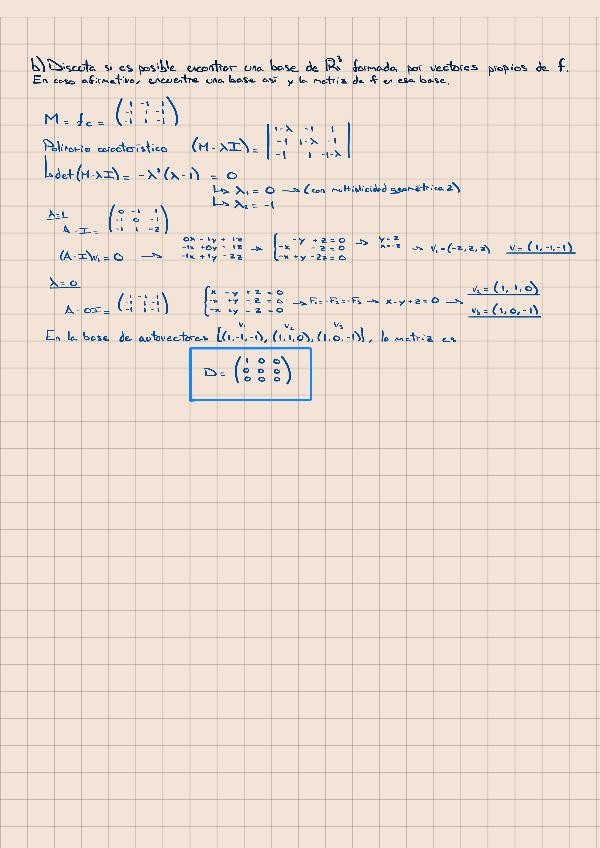 b) Discuta si es posible encontrar una base de ℝ³ formada por vectores propios de f.
En caso afirmativo, encuentre una base así y la matriz de f en esa base.
M = f_c = ( 1 -1 1 ; -1 1 -1 ; -1 1 -1 )
Polinomio característico (M-λI) = | 1-λ -1 1 ; -1 1-λ -1 ; -1 1 -1-λ |
↳ det(M-λI) = -λ²(λ-1) = 0
↳ λ₁ = 0 → (con multiplicidad geométrica 2)
↳ λ₂ = -1
λ=1
A-I = ( 0 -1 1 ; -1 0 -1 ; -1 1 -2 )
(A-I)v₁ = 0 → 0x - 1y + 1z ; -1x + 0y - 1z ; -1x + 1y - 2z → { -y + z = 0 ; -x - z = 0 ; -x + y - 2z = 0 → y = z ; x = -z → v₁ = (-z, z, z) v = (1, -1, -1)
λ=0
A-0I = ( 1 -1 1 ; -1 1 -1 ; -1 1 -1 ) { x - y + z = 0 ; -x + y - z = 0 ; -x + y - z = 0 → F₁ = -F₂ = -F₃ → x-y+z=0 → v₂ = (1, 1, 0)
v₃ = (1, 0, -1)
v₁ v₂ v₃
En la base de autovectores {(1,-1,-1), (1,1,0), (1,0,-1)}, la matriz es
D = ( 1 0 0 ; 0 0 0 ; 0 0 0 )